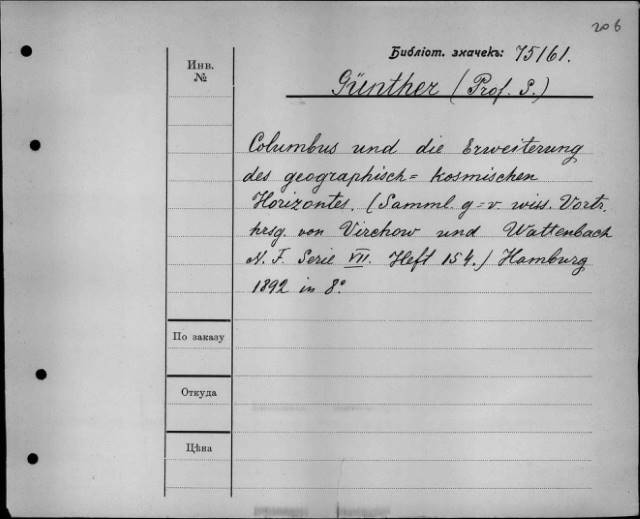 206
Библіот. значекъ: 75/61.
Инв. №
Günther (Prof. S.)
Columbus und die Erweiterung
des geographisch= kosmischen
Horizontes. (Samml. g=v. wiss. Vortr.
hrsg. von Virchow und Wattenbach
N. F. Serie VII. Heft 154.) Hamburg
1892 in 8°
По заказу
Откуда
Цѣна